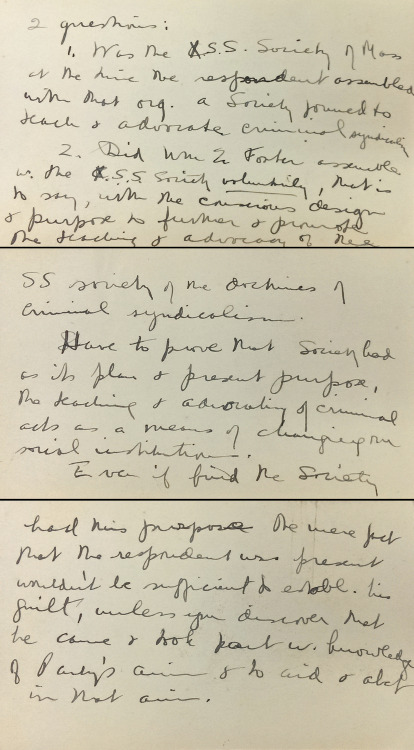 2 questions:
1. Was the S.S. Society of Mass
at the time the respondent assembled
with that org. a Society formed to
teach & advocate criminal syndicalism
2. Did Wm Z Foster assemble
w. the S.S. Society voluntarily, that is
to say, with the conscious design
& purpose to further & promote
the teaching & advocacy of the
SS society of the doctrines of
criminal syndicalism.
Have to prove that Society had
as its plan & present purpose,
the teaching & advocating of criminal
acts as a means of changing our
social institutions.
Even if find the Society
had this purpose the mere fact
that the respondent was present
wouldn't be sufficient to establ. his
guilt, unless you discover that
he came & took part w. knowledge
of Party's aim & to aid & abet
in that aim.